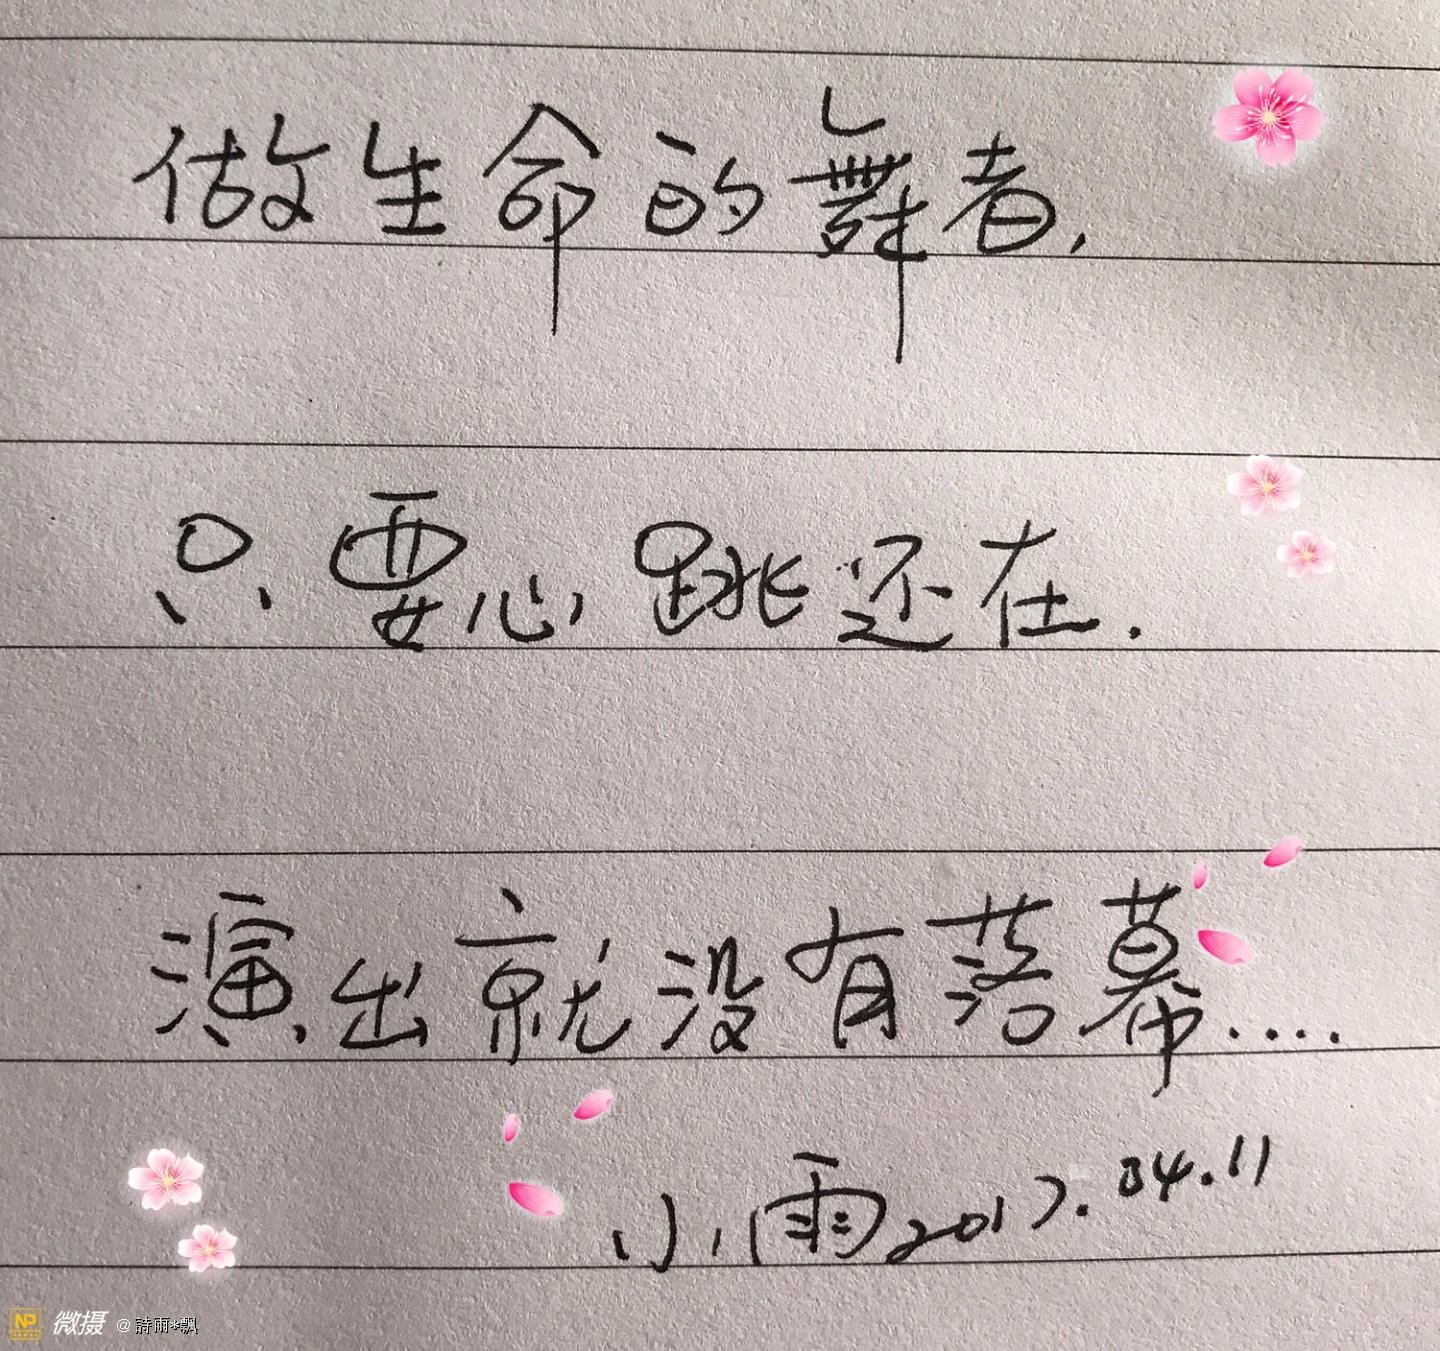 做生命的舞者,
只要心跳还在.
演出就没有落幕....
小雨2017.04.11
NP 微摄 @詩雨*飄